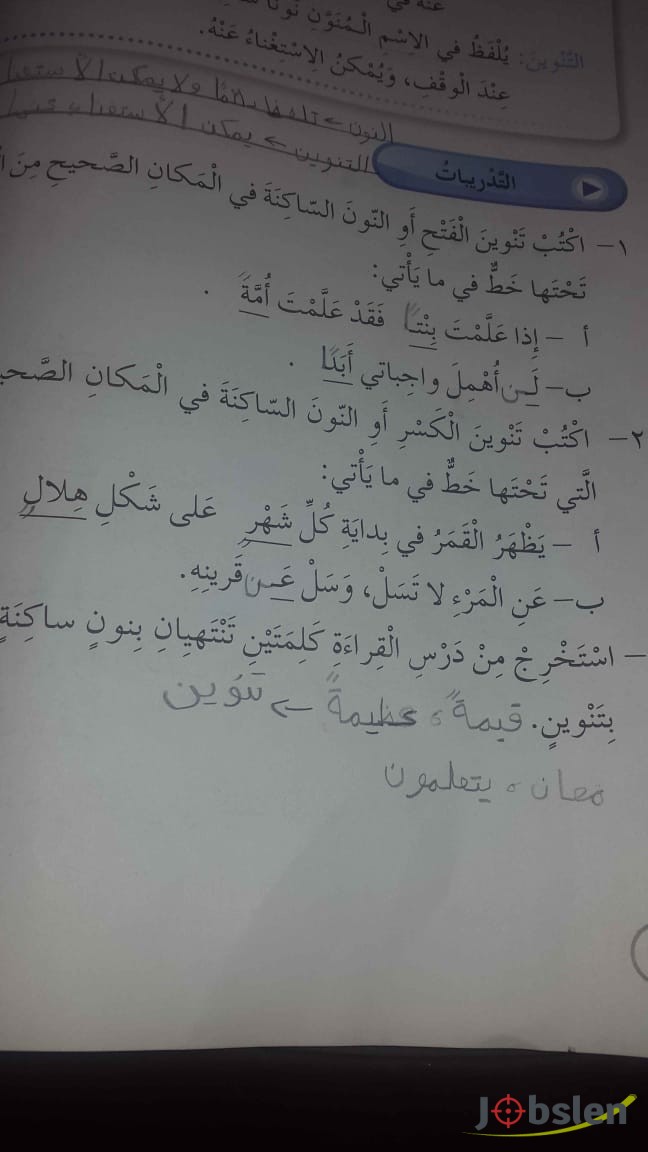 عنه في
التَّنْوينَ: يُلْفَظُ في الِاسْمِ الْمُنَوَّنِ نونًا
عِنْدَ الْوَقْفِ، وَيُمْكنُ الِاسْتِغْناءُ عَنْهُ.
النون > تلفظ دائمًا ولا يمكن الاستغنا
التنوين > يمكن الأستغناء عنها
التَّدْريباتُ
١- اكْتُبْ تَنْوينَ الْفَتْحِ أَوِ النّونَ السّاكِنَةَ في الْمَكانِ الصَّحيحِ مِنَ
تَحْتَها خَطٌّ في ما يَأْتي:
أ - إِذا عَلَّمْتَ بِنْتاً فَقَدْ عَلَّمْتَ أُمَّةً .
ب- لَـن أُهْمِلَ واجِباتي أَبَدًا .
٢- اكْتُبْ تَنْوينَ الْكَسْرِ أَوِ النّونَ السّاكِنَةَ في الْمَكانِ الصَّحيـ
الَّتي تَحْتَها خَطٌّ في ما يَأْتي:
أ - يَظْهَرُ الْقَمَرُ في بِدايَةِ كُلِّ شَهْرٍ عَلى شَكْلِ هِلالٍ
ب- عَنِ الْمَرْءِ لا تَسَلْ، وَسَلْ عَـن قَرينِهِ.
- اسْتَخْرِجْ مِنْ دَرْسِ الْقِراءَةِ كَلِمَتَيْنِ تَنْتَهِيانِ بِنونٍ ساكِنَةٍ
بِتَنْوينٍ. قيمةً، عظيمةً -> تنوين
معان، يتعلمون
Jobslen